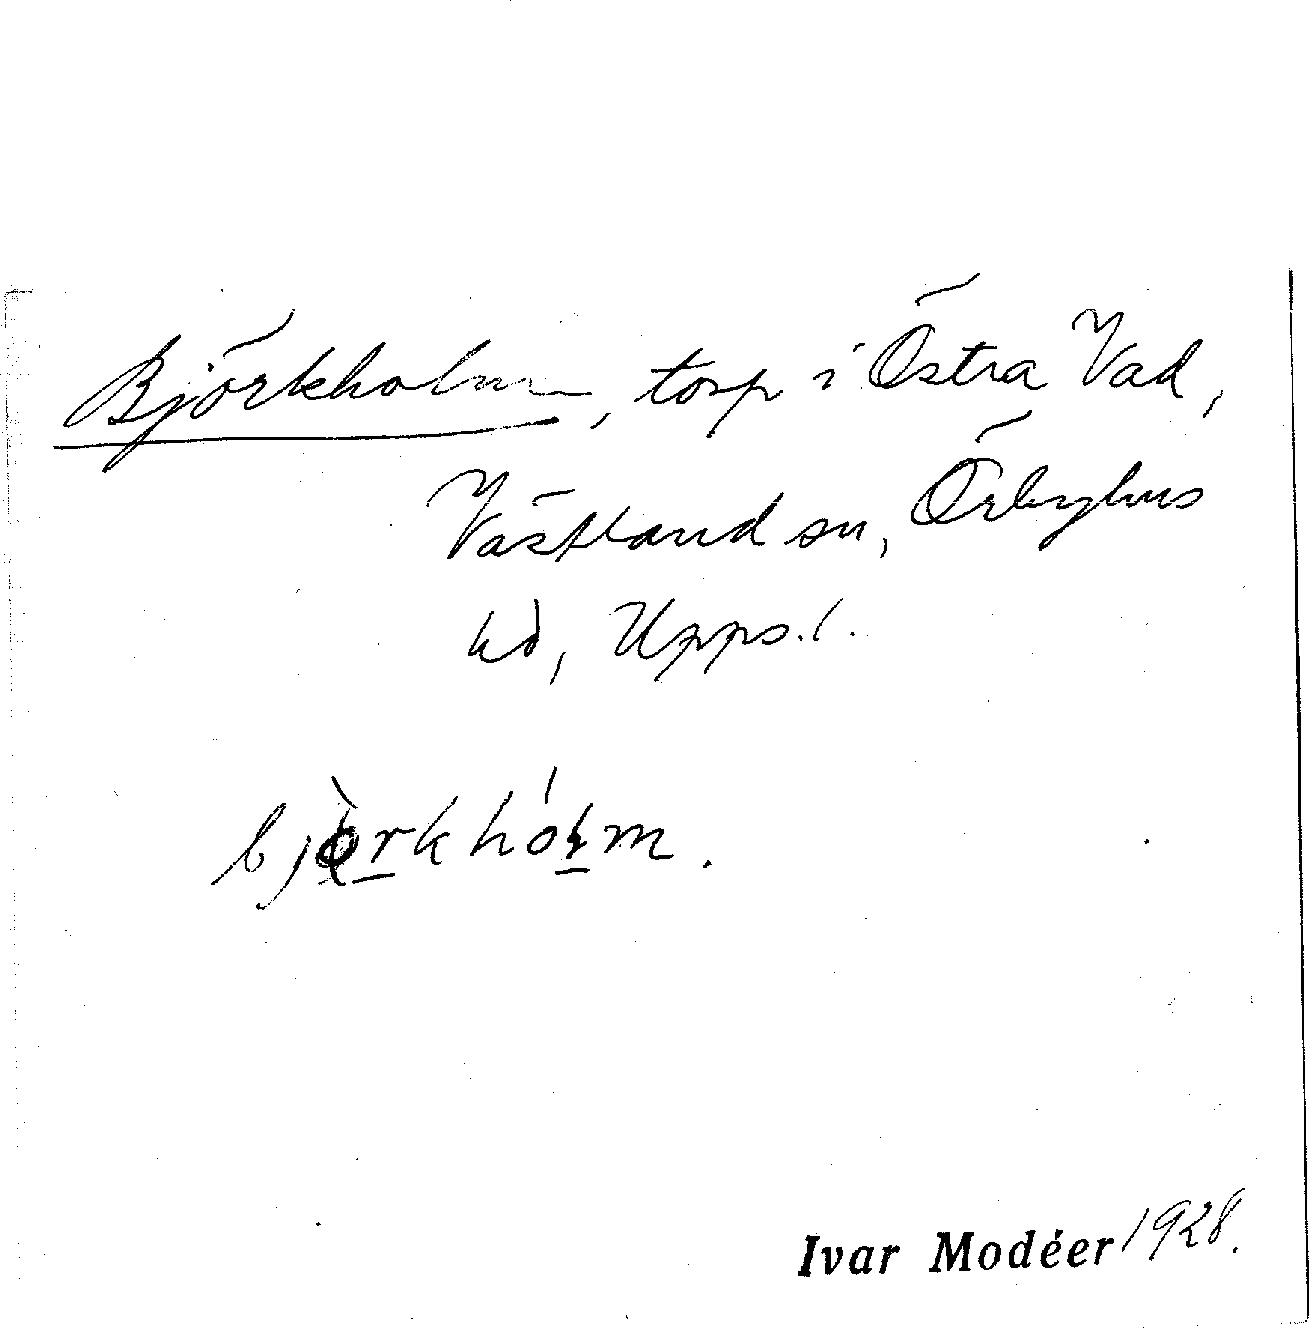 Björkholm, torp i Östra Vad,
Västland sn, Örbyhus
hd, Upps. l.
bjòrkhólm.
Ivar Modéer 1928.